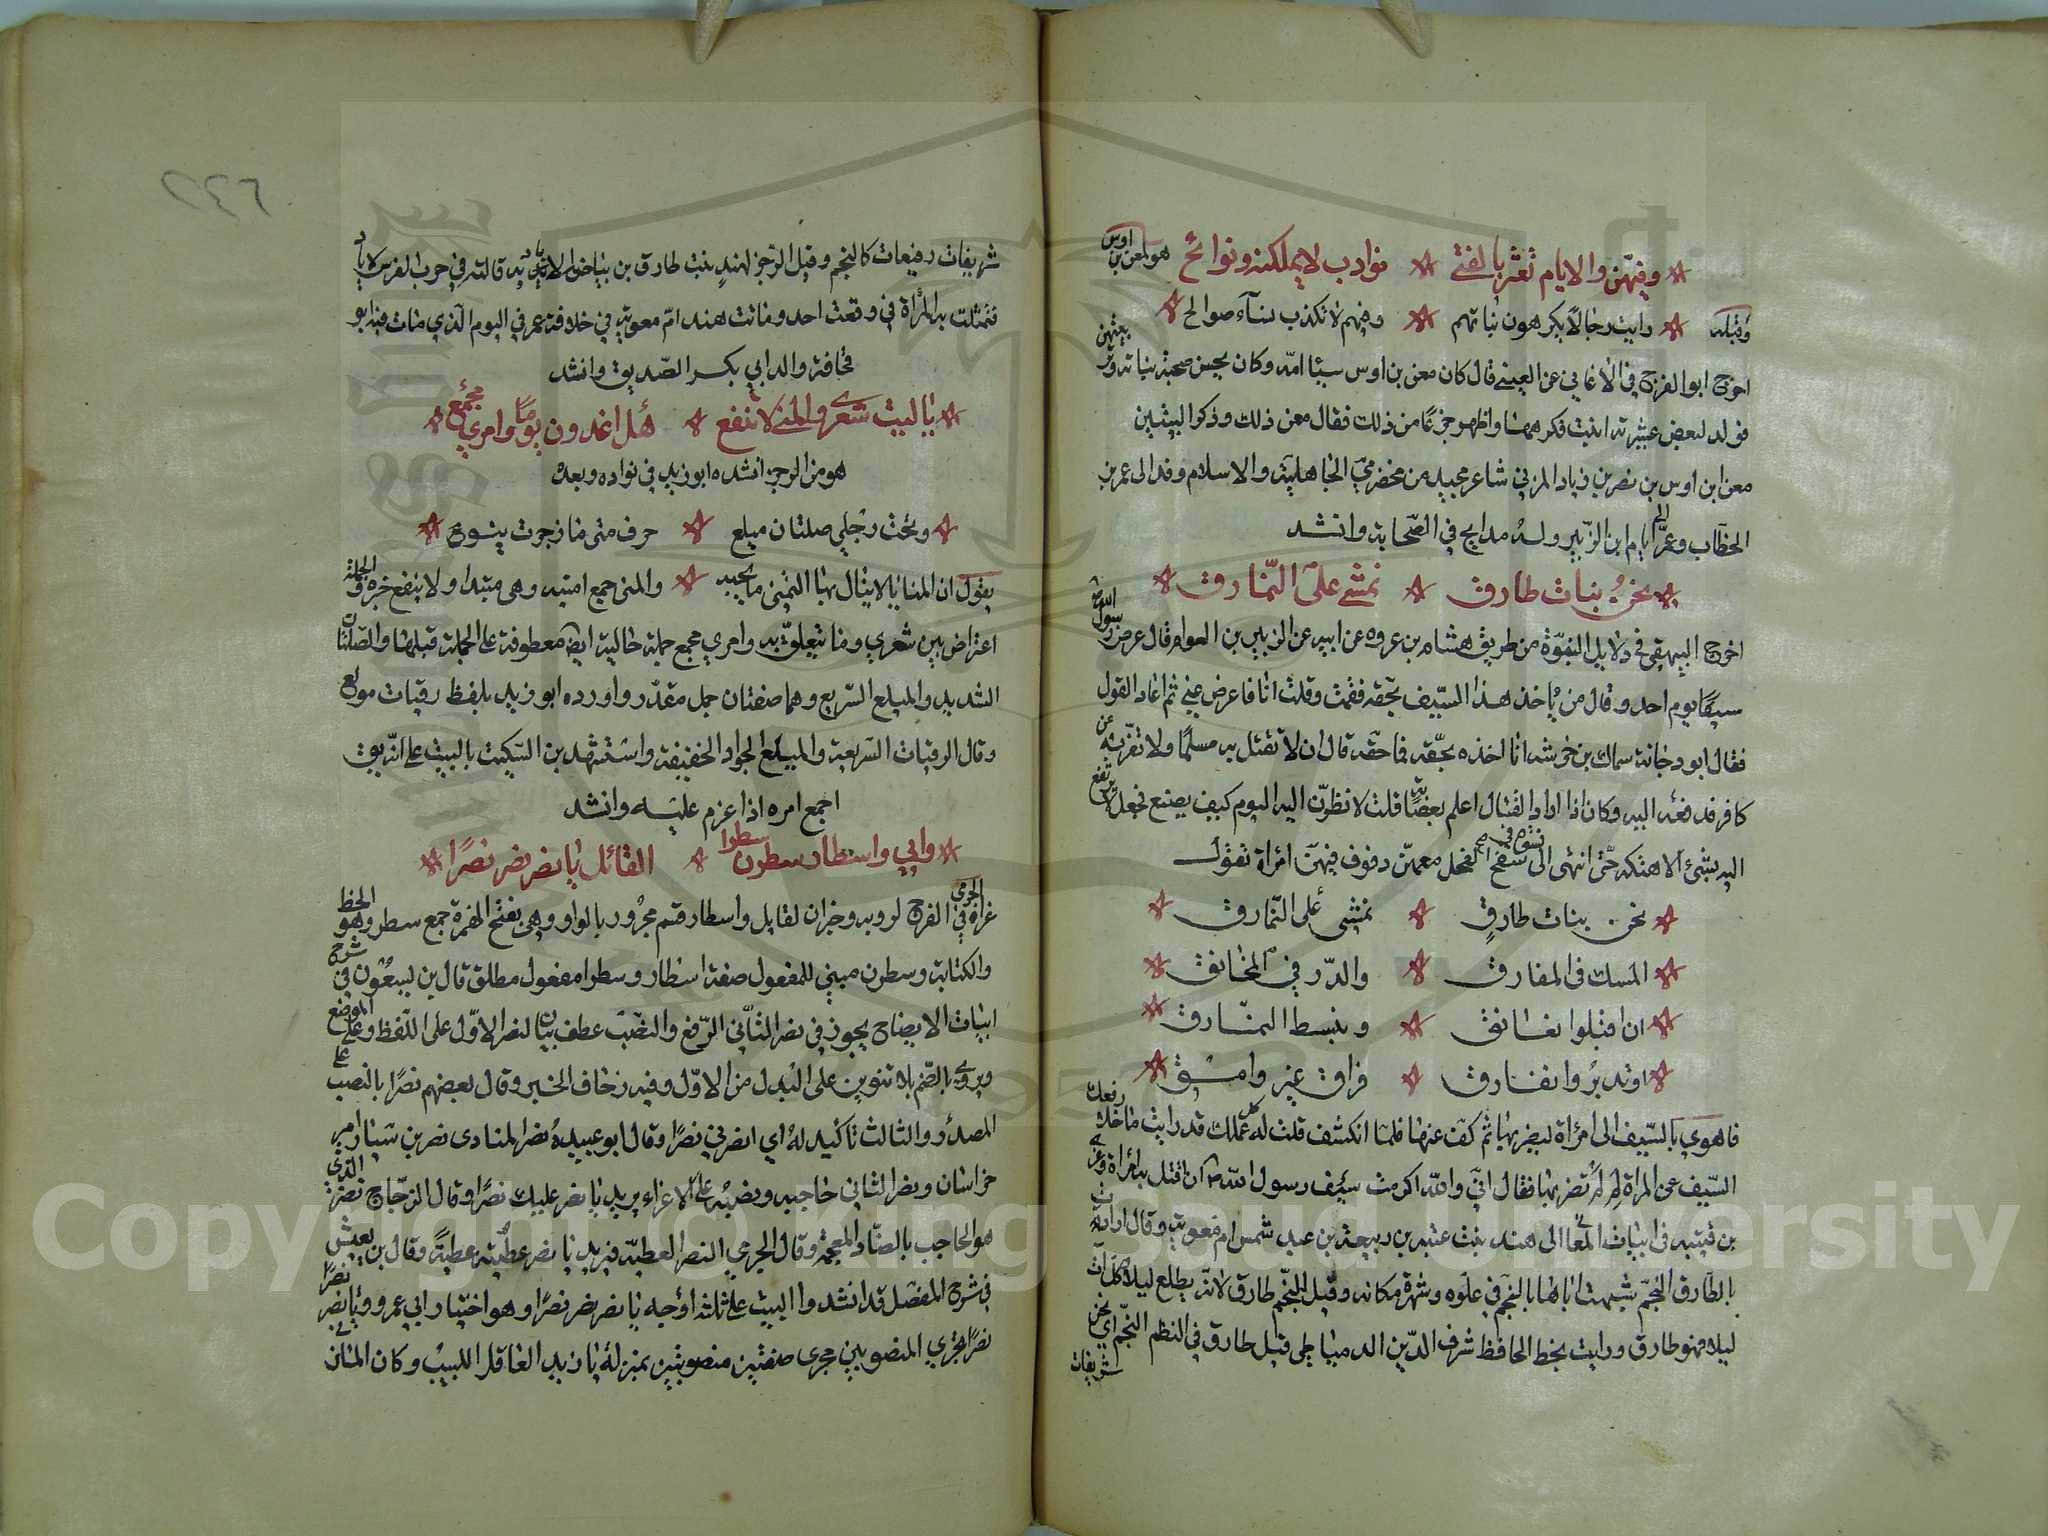 وفيهن والايام تعثر بالفتى نوادب لا يمللنه ونوائح هو لمعن بن اوس
وقبله رايت رجالا يكرهون بناتهم وفيهم لا تكذب نساء صوالح
اخرج ابو الفرج في الاغاني عن العيني قال كان معن بن اوس سيئا امه وكان يحسن صحبة بناته وتربيتهن
فولد لبعض عشيرته ابنت فكرهها واظهر جزعا من ذلك فقال معن ذلك وذكر البيتين
معن ابن اوس بن نصر بن زياد المزني شاعر مجيد من مخضرمي الجاهلية والاسلام وفد الى عمر بن
الخطاب وعمر الى ايام ابن الزبير وله مدايح في الصحابة وانشد
نحن بنات طارق نمشي على النمارق
اخرج البيهقي في دلايل النبوة من طريق هشام بن عروه عن ابيه عن الزبير بن العوام قال عرض رسول الله
سيفا يوم احد وقال من ياخذ هذا السيف بحقه فقمت وقلت انا فاعرض عني ثم اعاد القول
فقال ابو دجانة سماك بن خرشه انا اخذه بحقه فما حقه قال ان لا تقتل به مسلما ولا تفر به عن
كافر فدفعه اليه وكان اذا اراد القتال اعلم بعصابة قلت لانظرن اليه اليوم كيف يصنع فجعل لا يرتفع
اليه شئ الا هتكه حتى انتهى الى نسوة في سفح الجبل معهن دفوف فيهن امراة تقول
نحن بنات طارق نمشي على النمارق
المسك في المفارق والدر في المخانق
ان اقبلوا نعانق ونبسط النمارق
او تدبروا نفارق فراق غير وامق
فاهوى بالسيف الى امراة ليضربها ثم كف عنها فلما انكشف قلت له كل عملك قد رايت ما خلا رفعك
السيف عن المراة لم لم تضربها فقال اني والله اكرمت سيف رسول الله ان اقتل به امراة
بن قتيبه في ابيات المعاني الى هند بنت عتبه بن ربيعة بن عبد شمس ام معوية وقال ارادت
بالطارق النجم شبهت اباها بالنجم في علوه وشهرة مكانه وقيل للنجم طارق لانه يطلع ليلا وكل آت
ليلا فهو طارق ورايت بخط الحافظ شرف الدين الدمياطي قيل طارق في النظم النجم اي نحن
شريفات
٢٢٦
شريفات رفيعات كالنجم وقيل الرجز لهند بنت طارق بن بياضة الايادية قالته في حرب الفرس لاياد
فتمثلت به المراة في وقعت احد وماتت هند ام معوية في خلافة عمر في اليوم الذي مات فيه ابو
قحافة والد ابي بكر الصديق وانشد
يا ليت شعري والمنى لا تنفع هل اغدون يوما وامري مجمع
هو من الرجز انشده ابو زيد في نواده وبعده
وتحت رجلي صلتان ميلع حرف متى ما زجرت
يقول ان المنايا لا ينال بها المتمنى ما يحب والمنى جمع امنيه وهى مبتدا ولا ينفع خبره والجملة
اعتراض بين شعري وما تتعلق به وامري مجمع جملة حالية ايض معطوفة على الجملة قبلها والصلتان
الشديد والميلع السريع وهما صفتان جمل مقدر واورده ابو زيد بلفظ
وقال الرفيات السريعة والميلع الجواد الخفيفة واستشهد بن السكيت بالبيت على انه يق
اجمع امره اذا عزم عليه وانشد
واني واسطار سطرن سطرا القائل يا نصر نصر نصرا
عزاه في الفرح الجرمي لروبه وخبر ان لقايل واسطار قسم مجرور بالواو وهى بفتح الهمزة جمع سطر وهو الخط
والكتابة وسطرن مبني للمفعول صفة اسطار وسطرا مفعول مطلق قال بن يسعون في شرح
ابيات الايضاح يجوز في نصر الثاني الرفع والنصب عطف بيان لنصر الاول على اللفظ وعلى الموضع
ويروي بالضم بلا تنوين على البدل من الاول وفيه زحاف الخبر وقال بعضهم نصرا بالنصب على
المصدر والثالث تاكيد له اي انصرني نصرا وقال ابو عبيده نصر المنادى نصر بن سيار امير
خراسان ونصر الثاني حاجبه ونصبه على الاغراء يريد يا نصر عليك نصرا وقال الزجاج نصر الذي
هو الحاجب بالضاد المعجمه وقال الجرمي النصر العطية فيريد يا نصر عطية عطية وقال بن يعيش
في شرح المفصل قد انشدوا البيت على ثلثة اوجه يا نصر نصر نصرا وهو اختيار ابي عمرو ويا نصر نصرا
نصرا تجري المنصوبين مجرى صفتين منصوبتين بمنزلة يا زيد العاقل اللبيب وكان المازني
Copyright © King Saud University
1957